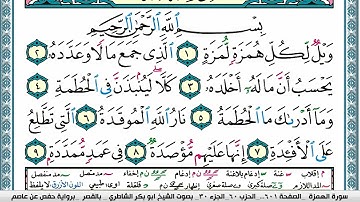 بِسْمِ اللَّهِ الرَّحْمَٰنِ الرَّحِيمِ
وَيْلٌ لِّكُلِّ هُمَزَةٍ لُّمَزَةٍ ١ الَّذِي جَمَعَ مَالًا وَعَدَّدَهُ ٢
يَحْسَبُ أَنَّ مَالَهُ أَخْلَدَهُ ٣ كَلَّا لَيُنبَذَنَّ فِي الْحُطَمَةِ ٤
وَمَا أَدْرَاكَ مَا الْحُطَمَةُ ٥ نَارُ اللَّهِ الْمُوقَدَةُ ٦ الَّتِي تَطَّلِعُ
عَلَى الْأَفْئِدَةِ ٧ إِنَّهَا عَلَيْهِم مُّؤْصَدَةٌ ٨ فِي عَمَدٍ مُّمَدَّدَةٍ ٩
سورة الهمزة الصفحة ٦٠١ الجزء ٣٠ الحزب ٦٠ بصوت الشيخ أبو بكر الشاطري بالقصر رواية حفص عن عاصم